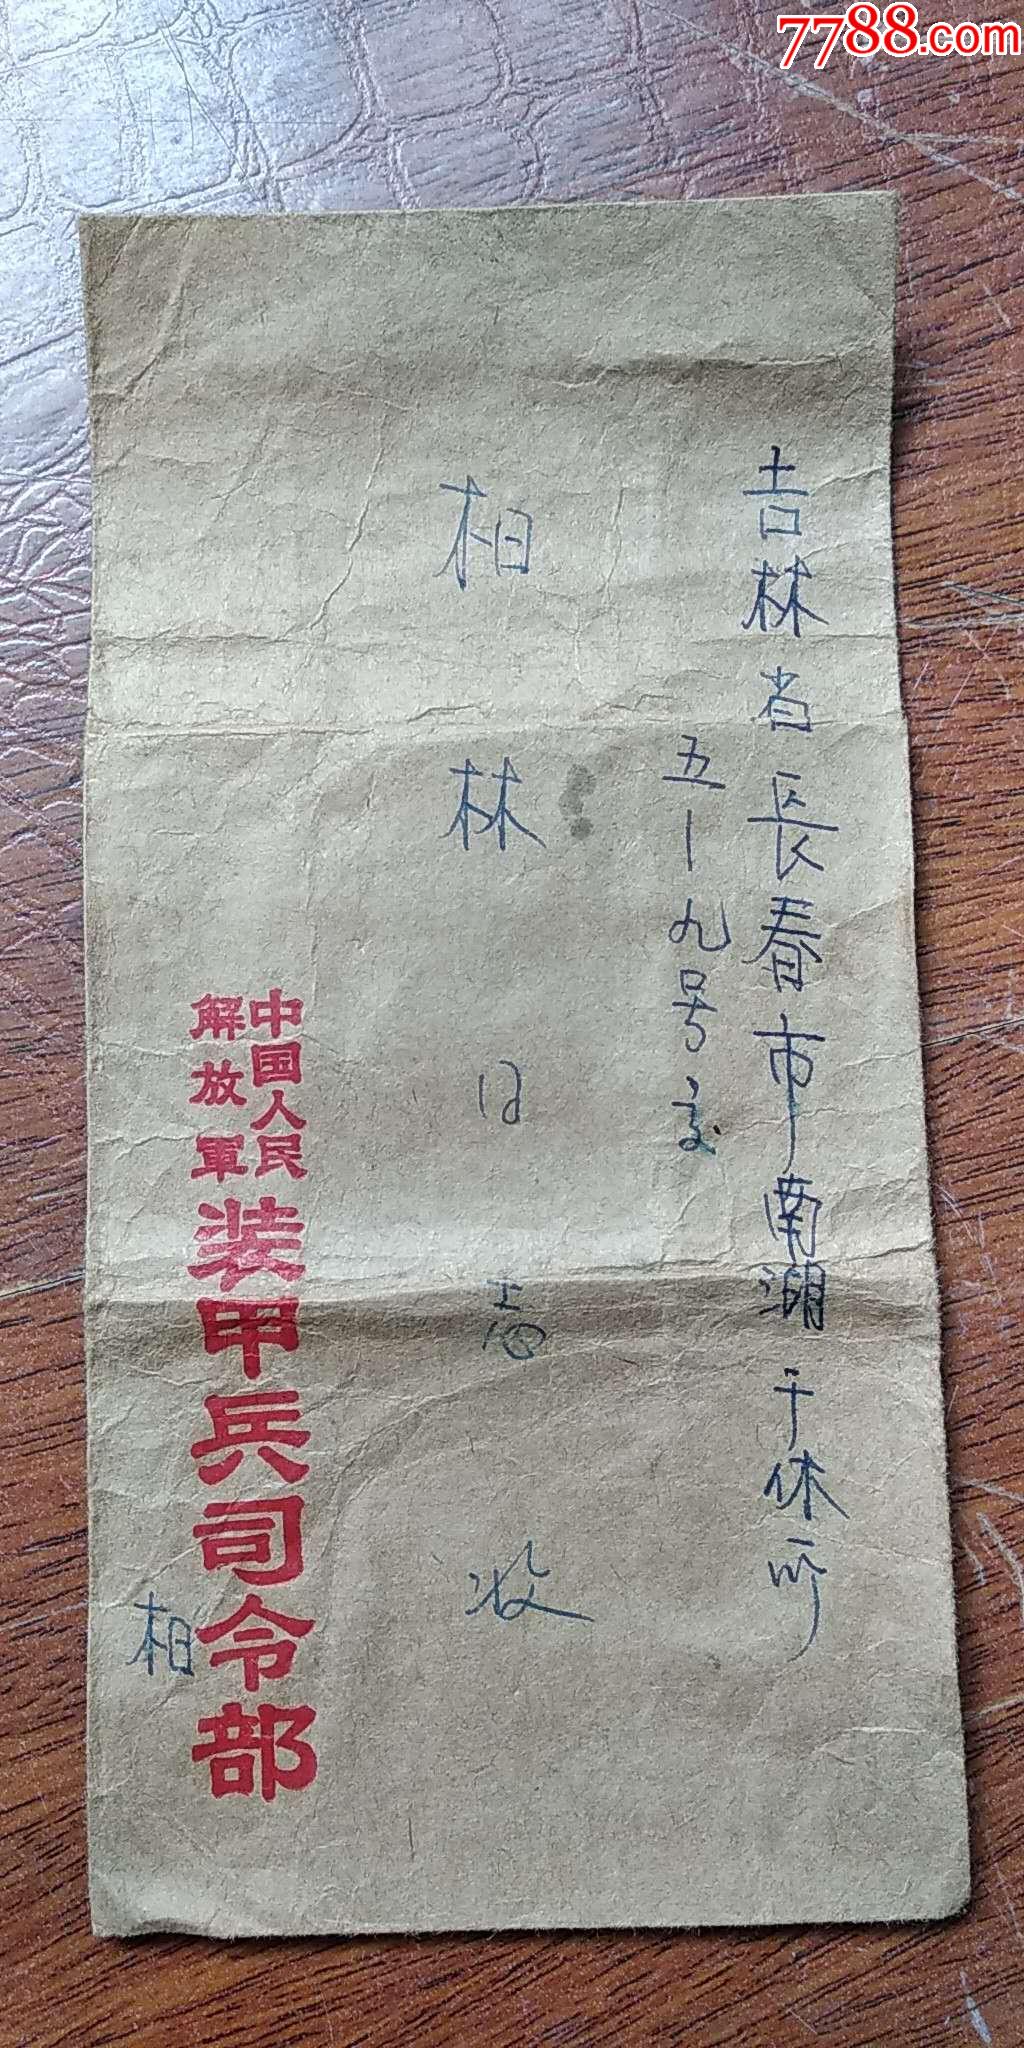 7788.com
吉林省長春市南湖干休所
五-九号交
柏林同志收
中国人民
解放軍
装甲兵司令部
柏